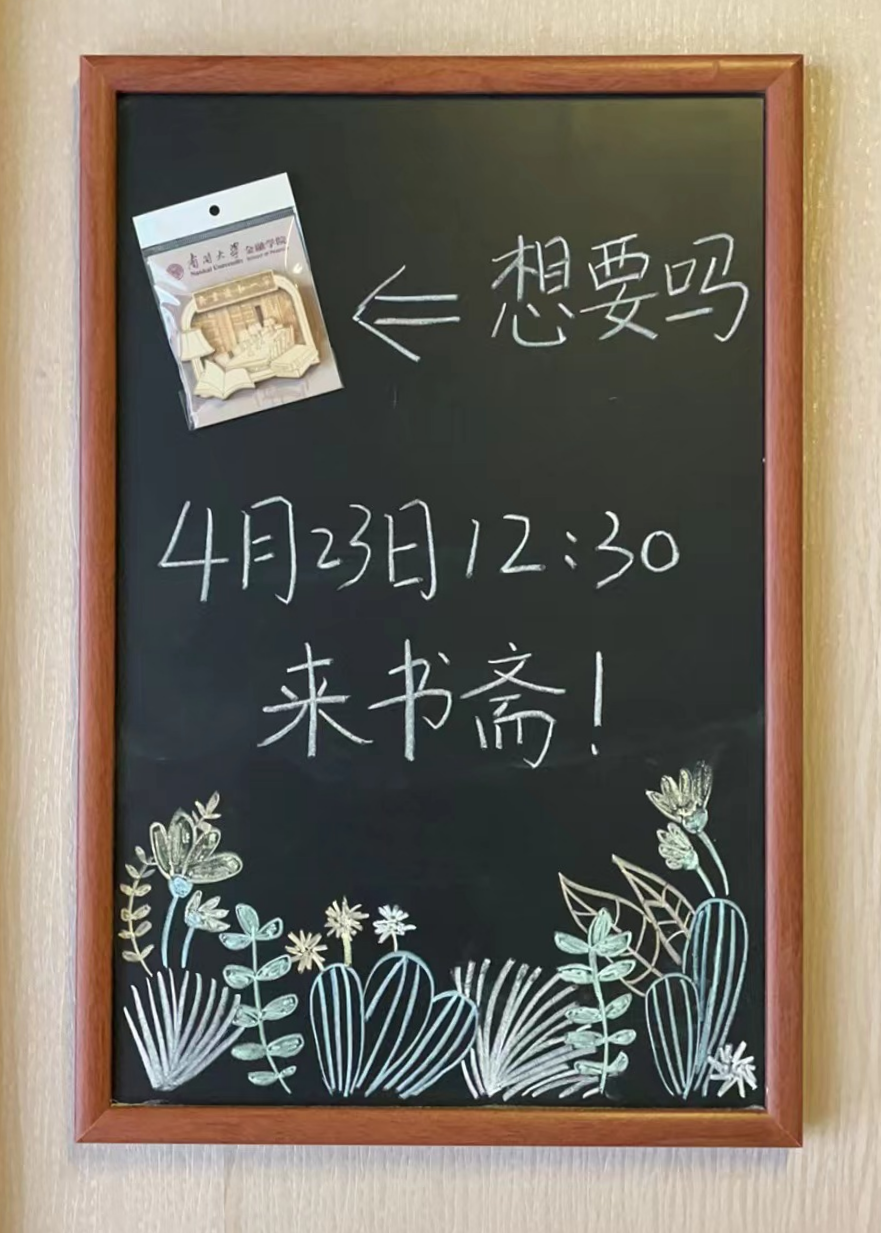 南开大学 金融学院
Nankai University School of Finance
想要吗
4月23日12:30
来书斋！